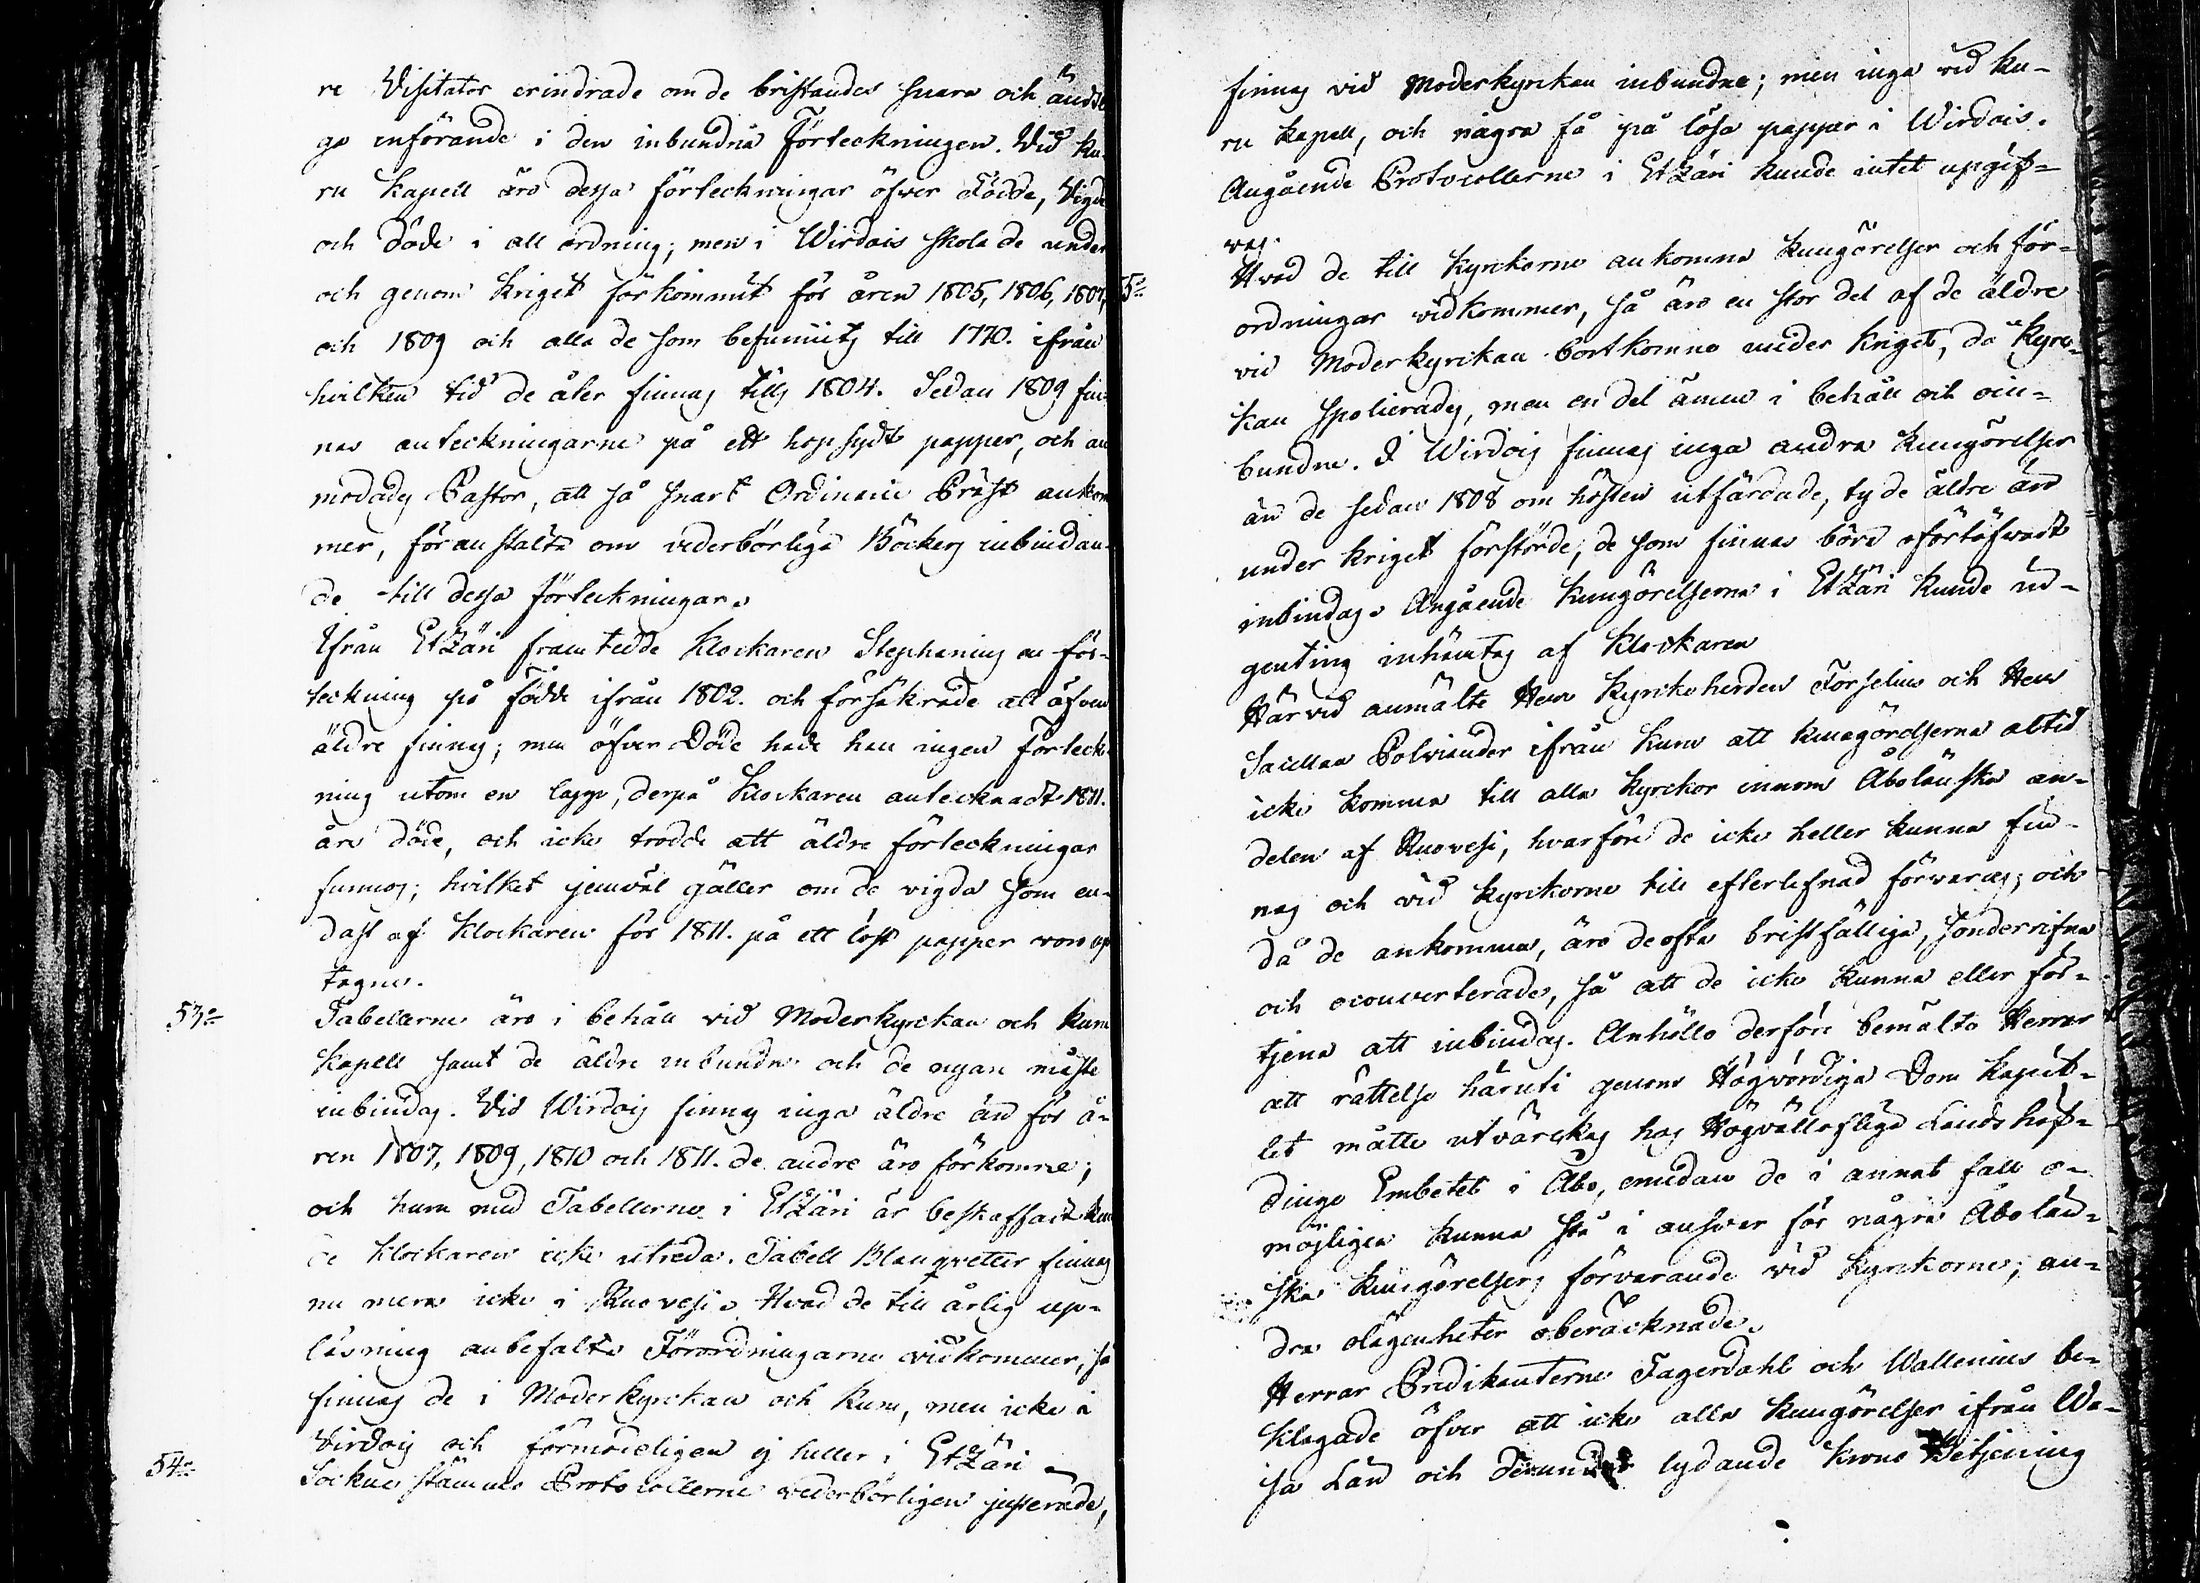 re Visitator erindrade om de bristandes snara och ändt
ga införande i den inbundna Förteckningen. Vid Ku
ru Kapell äro dessa förteckningar öfver Födde, Vigde
och Döde i all ordning; men i Wirdois skola de under
och genom Kriget förkommit för åren 1805, 1806, 1807,
och 1809 och alla de som befunnits till 1770. ifrån
hvilken tid de åter finnas tills 1804. Sedan 1809 fin
nas anteckningarne på ett hopsydt papper, och an
modades Pastor, att så snart Ordinarie Präst ankom
mer, föranstalta om vederbörliga Böckers inbindan-
de till dessa förteckningar.
Ifrån Etzäri framtedde Klockaren Stephanius en för-
teckning på födde ifrån 1802. och försäkrade att äfven
äldre finnas; men öfver Döde hade han ingen förteck
ning utom en lapp, derpå Klockaren antecknadt 1811.
års döde, och icke trodde att äldre förteckningar
funnos; hvilket jemväl gäller om de vigda som en-
dast af Klockaren för 1811. på ett löst papper voro up
tagne.
53:o
Tabellerne äro i behåll vid Moderkyrckan och Kuru
Kapell samt de äldre inbundne och de nyare måste
inbindas. Vid Wirdois finnas inga äldre än för å-
ren 1807, 1809, 1810 och 1811. de andre äro förkomne;
och huru med Tabellerne i Etzäri är beskaffadt kun
de Klockaren icke utreda. Tabell Blanqvetter finnas
nu mera icke i Ruovesi. Hvad de till årlig up-
läsning anbefalte Förordningarne vidkommer, så
finnas de i Moderkyrckan och Kuru, men icke i
Virdois och förmodeligen ej heller i Etzäri
54:o
Sockne stämmo Protocollerne vederbörligen justerade,
finnas vid Moderkyrckan inbundne; men inga vid Ku-
ru Kapell, och några få på lösa papper i Wirdois.
Angående Protocollerne i Etzäri kunde intet upgif-
vas.
55:o
Hvad de till Kyrckorne ankomne kungörelser och för-
ordningar vidkommer, så äro en stor del af de äldre
vid Moderkyrckan bortkomne under kriget, då Kyrc-
kan spolierades, men en del ännu i behåll och oin-
bundne. I Wirdois finnas inga andra Kungörelser
än de sedan 1808 om hösten utfärdade, ty de äldre äro
under kriget förstörde; de som finnas böra oförtöfvadt
inbindas. Angående Kungörelserna i Etzäri kunde in-
genting inhämtas af Klockaren
Härvid anmälte Herr Kyrckoherden Forselius och Herr
Sacellan Polviander ifrån Kuru att kungörelserna altid
icke komma till alla Kyrckor innom Åbolänska an-
delen af Ruovesi, hvarföre de icke heller kunna fin-
nas och vid Kyrckorne till efterlefnad förvaras; och
då de ankomma, äro de ofta bristfälliga, sönderrifna
och oconverterade, så att de icke kunna eller för-
tjena att inbindas. Anhöllo derföre bemälte Herrar
att rättelse häruti genom Högvördiga Dom Kapit-
let måtte utvärckas hos Högvälloflige Landshöf-
dinge Embetet i Åbo, emedan de i annat fall o-
möjligen kunna stå i ansvar för några Åbolän-
ska kungörelsers förvarande vid Kyrckorne; an-
dra olägenheter oberäcknade.
Herrar Predikanterne Fagerdahl och Wallenius be-
klagade öfver att icke alla kungörelser ifrån Wa-
sa Län och derunder lydande Krono Betjening